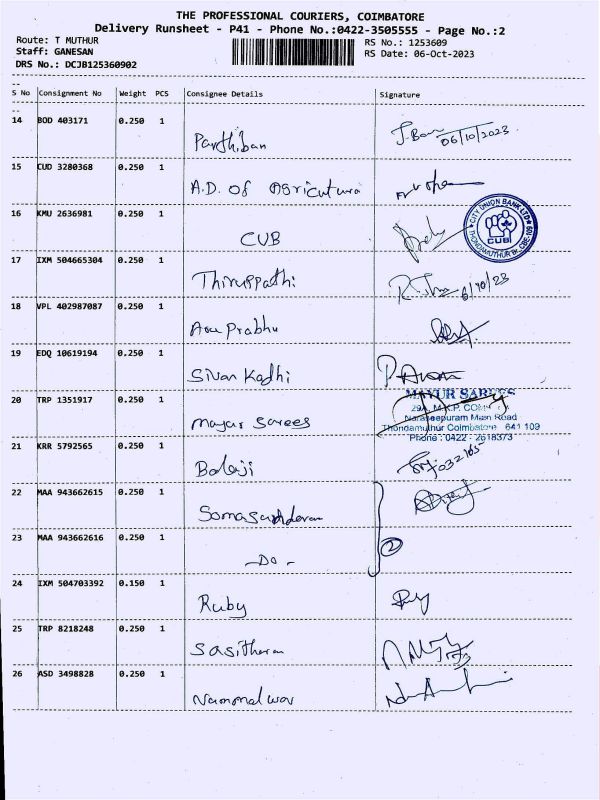 THE PROFESSIONAL COURIERS, COIMBATORE
Delivery Runsheet - P41 - Phone No.:0422-3505555 - Page No.:2
Route: T MUTHUR
RS No.: 1253609
Staff: GANESAN
RS Date: 06-Oct-2023
DRS No.: DCJB125360902
S No Consignment No Weight PCS Consignee Details Signature
14 BOD 403171 0.250 1 Parthiban 06/10/2023
15 CUD 3280368 0.250 1 A.D. of Agricutura
16 KMU 2636981 0.250 1 CUB
CITY UNION BANK LTD
CUB
17 IXM 504665304 0.250 1 Thiruppathi 6/10/23
18 VPL 402987087 0.250 1 Arun Prabhu
19 EDQ 10619194 0.250 1 Sivan Kadhi
20 TRP 1351917 0.250 1 mayur sarees
MAYUR SAREES
29A, M.K.P.
Naraseepuram Main Road
Thondamuthur Coimbatore 641 109
Phone : 0422 - 2618373
21 KRR 5792565 0.250 1 Balaji
22 MAA 943662615 0.250 1
23 MAA 943662616 0.250 1 -Do- 2
24 IXM 504703392 0.150 1 Ruby
25 TRP 8218248 0.250 1 Sasitharan
26 ASD 3498828 0.250 1 Nammalwar